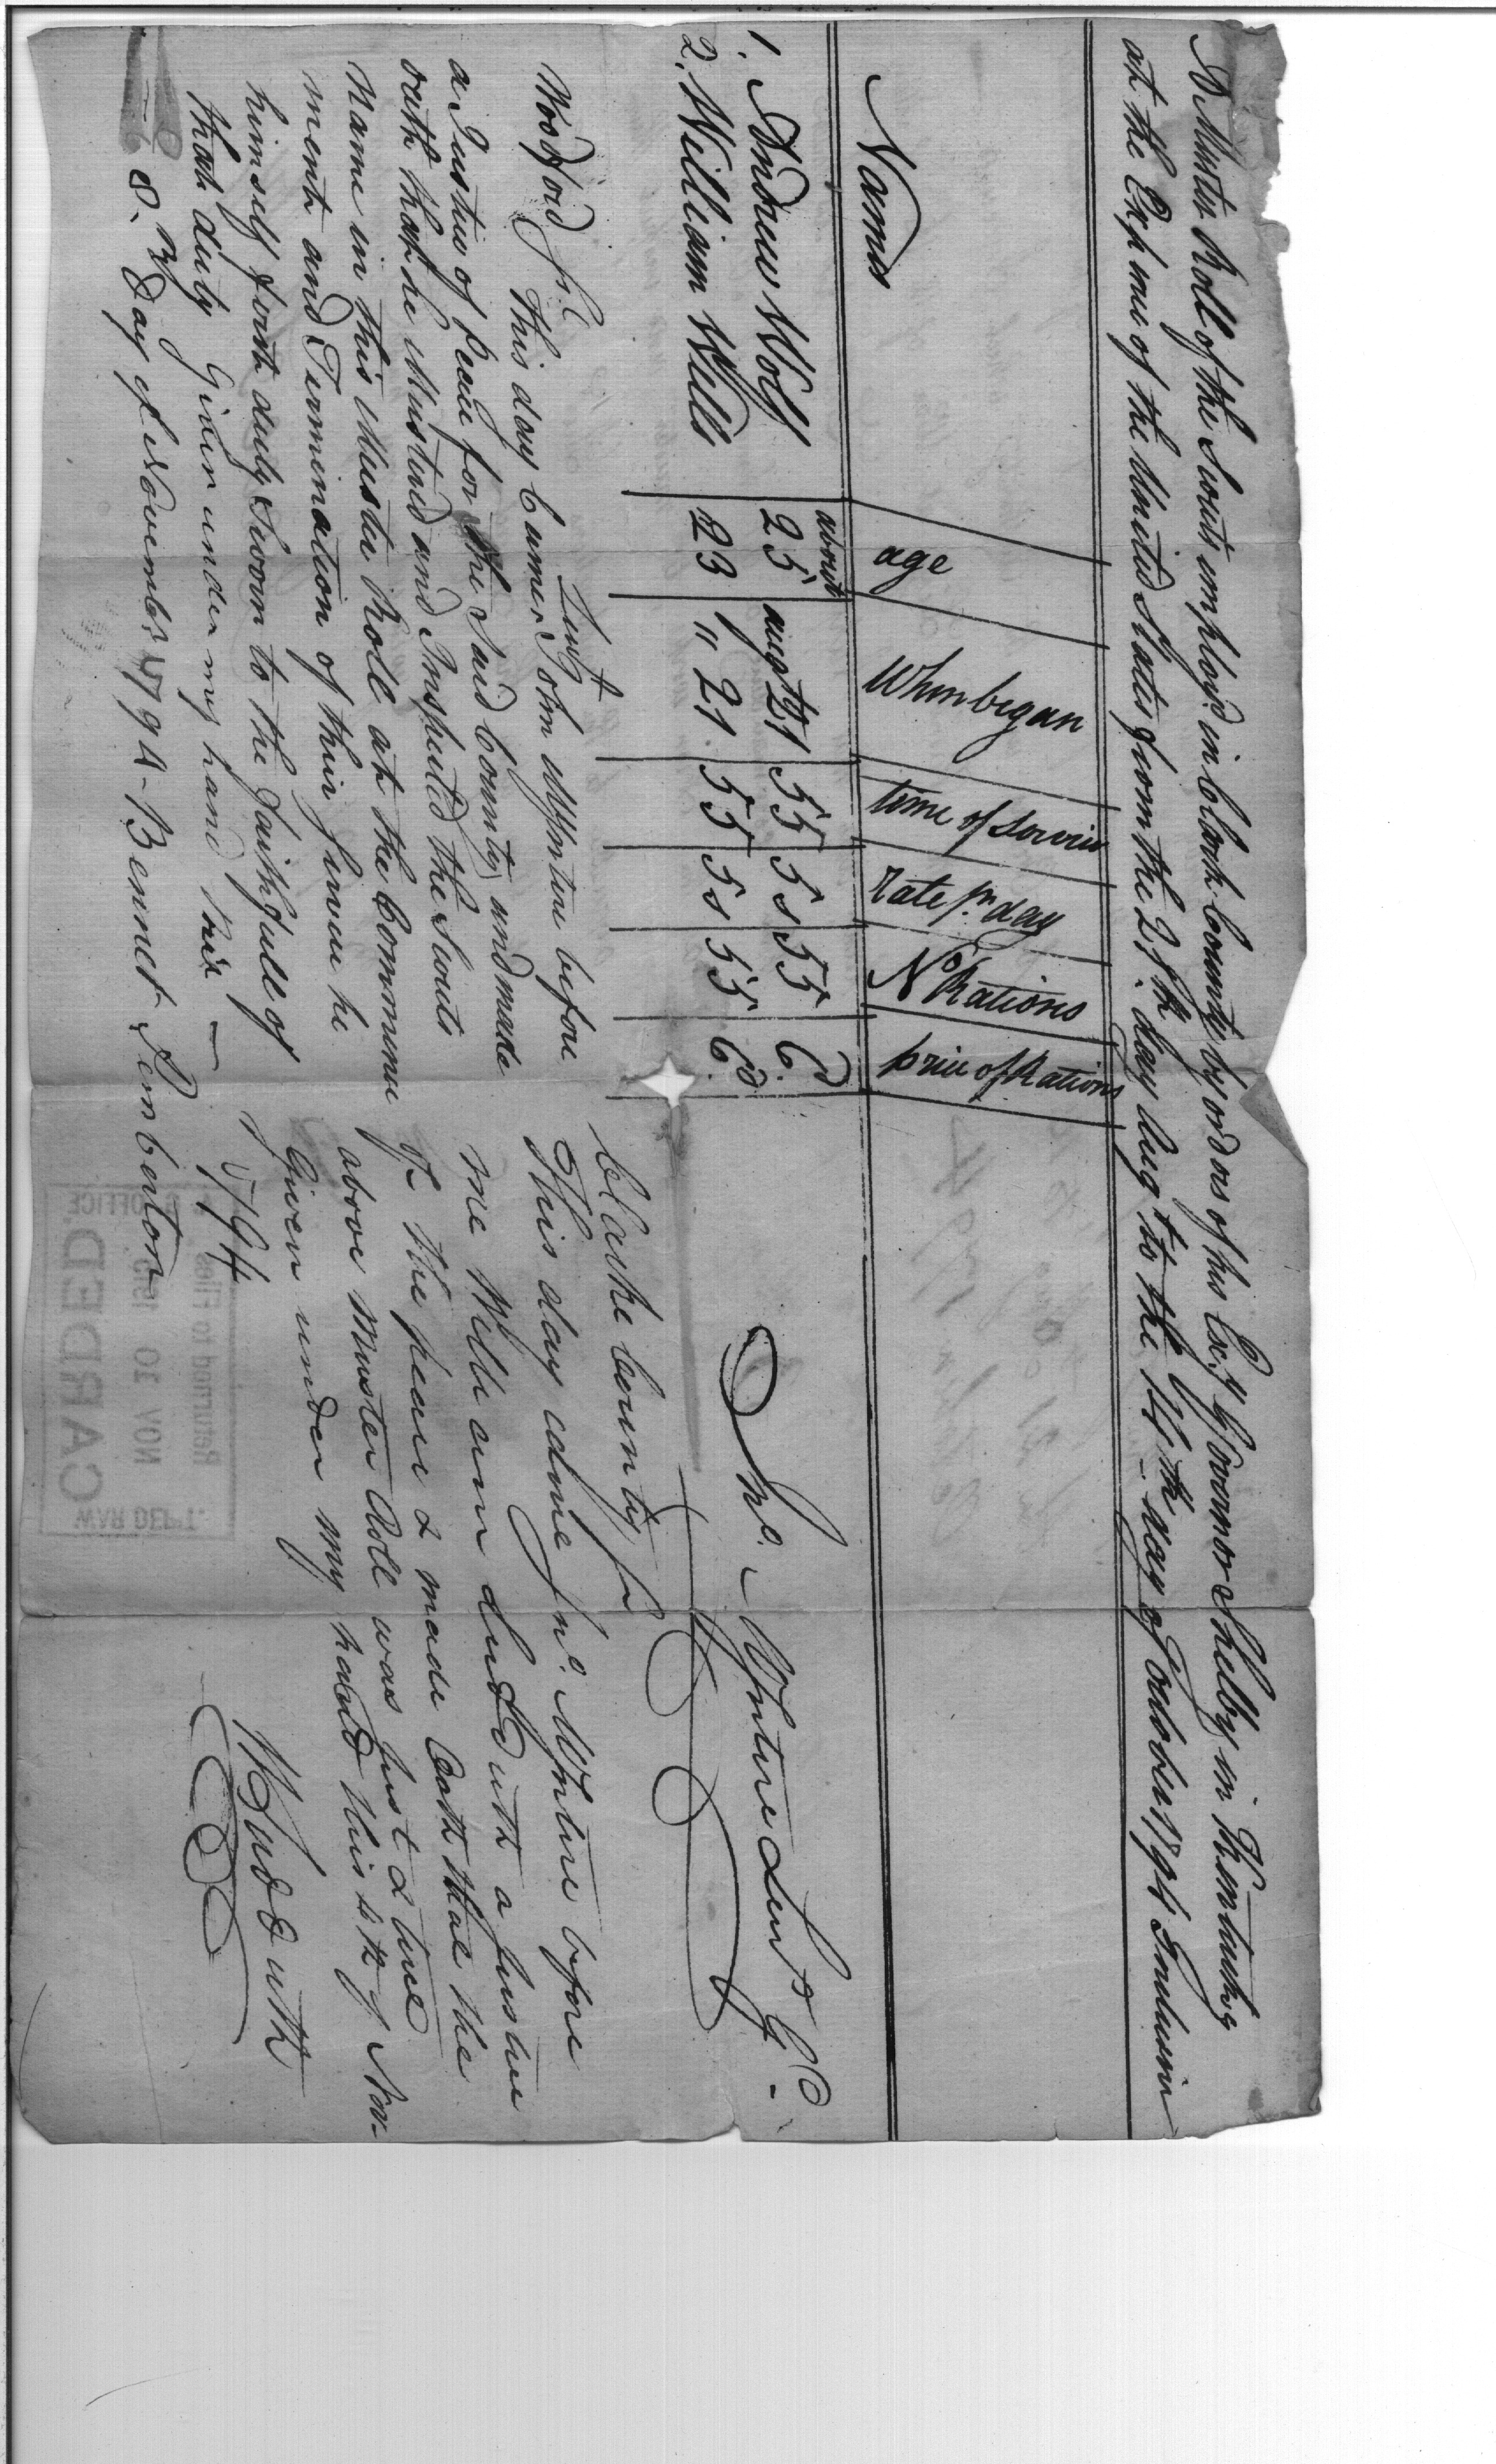 A Muster Roll of the Scouts employ'd in Clark County by orders of his Excy Governor Shelby in Kentucky
at the Expence of the United States from the 21st day Augt to the 14th day of October 1794 Inclusive
Names age When began time of Service rate pr day No Rations price of Rations
about
1. Andrew Wolf 25 augt 21 55 5s 55 6d
2. William Wells 23 " 21 55 5s 55 6d
Jno. McIntire Leut C C
Woodford Sc. This day Came Leut John McIntire before
a Justice of peace for the Said County and made
oath that he Mustred and Inspected the Scouts
Name in this Muster Roll at the Commence
ment and Termination of their Service he
himself first duly Sworn to the faithfull of
that duty Given under my hand this
8th Day of November 1794 - Bennet Pemberton
Clarke County Sc
This day came Jno. McIntire before
me William Sudduth a Justice
of the peace & made Oath that the
above Muster Roll was Just & true
Given under my hand this 4th of Nov-
r 1794
W Sudduth
WAR DEP'T.
Returned to Files
NOV 10
CARDED.